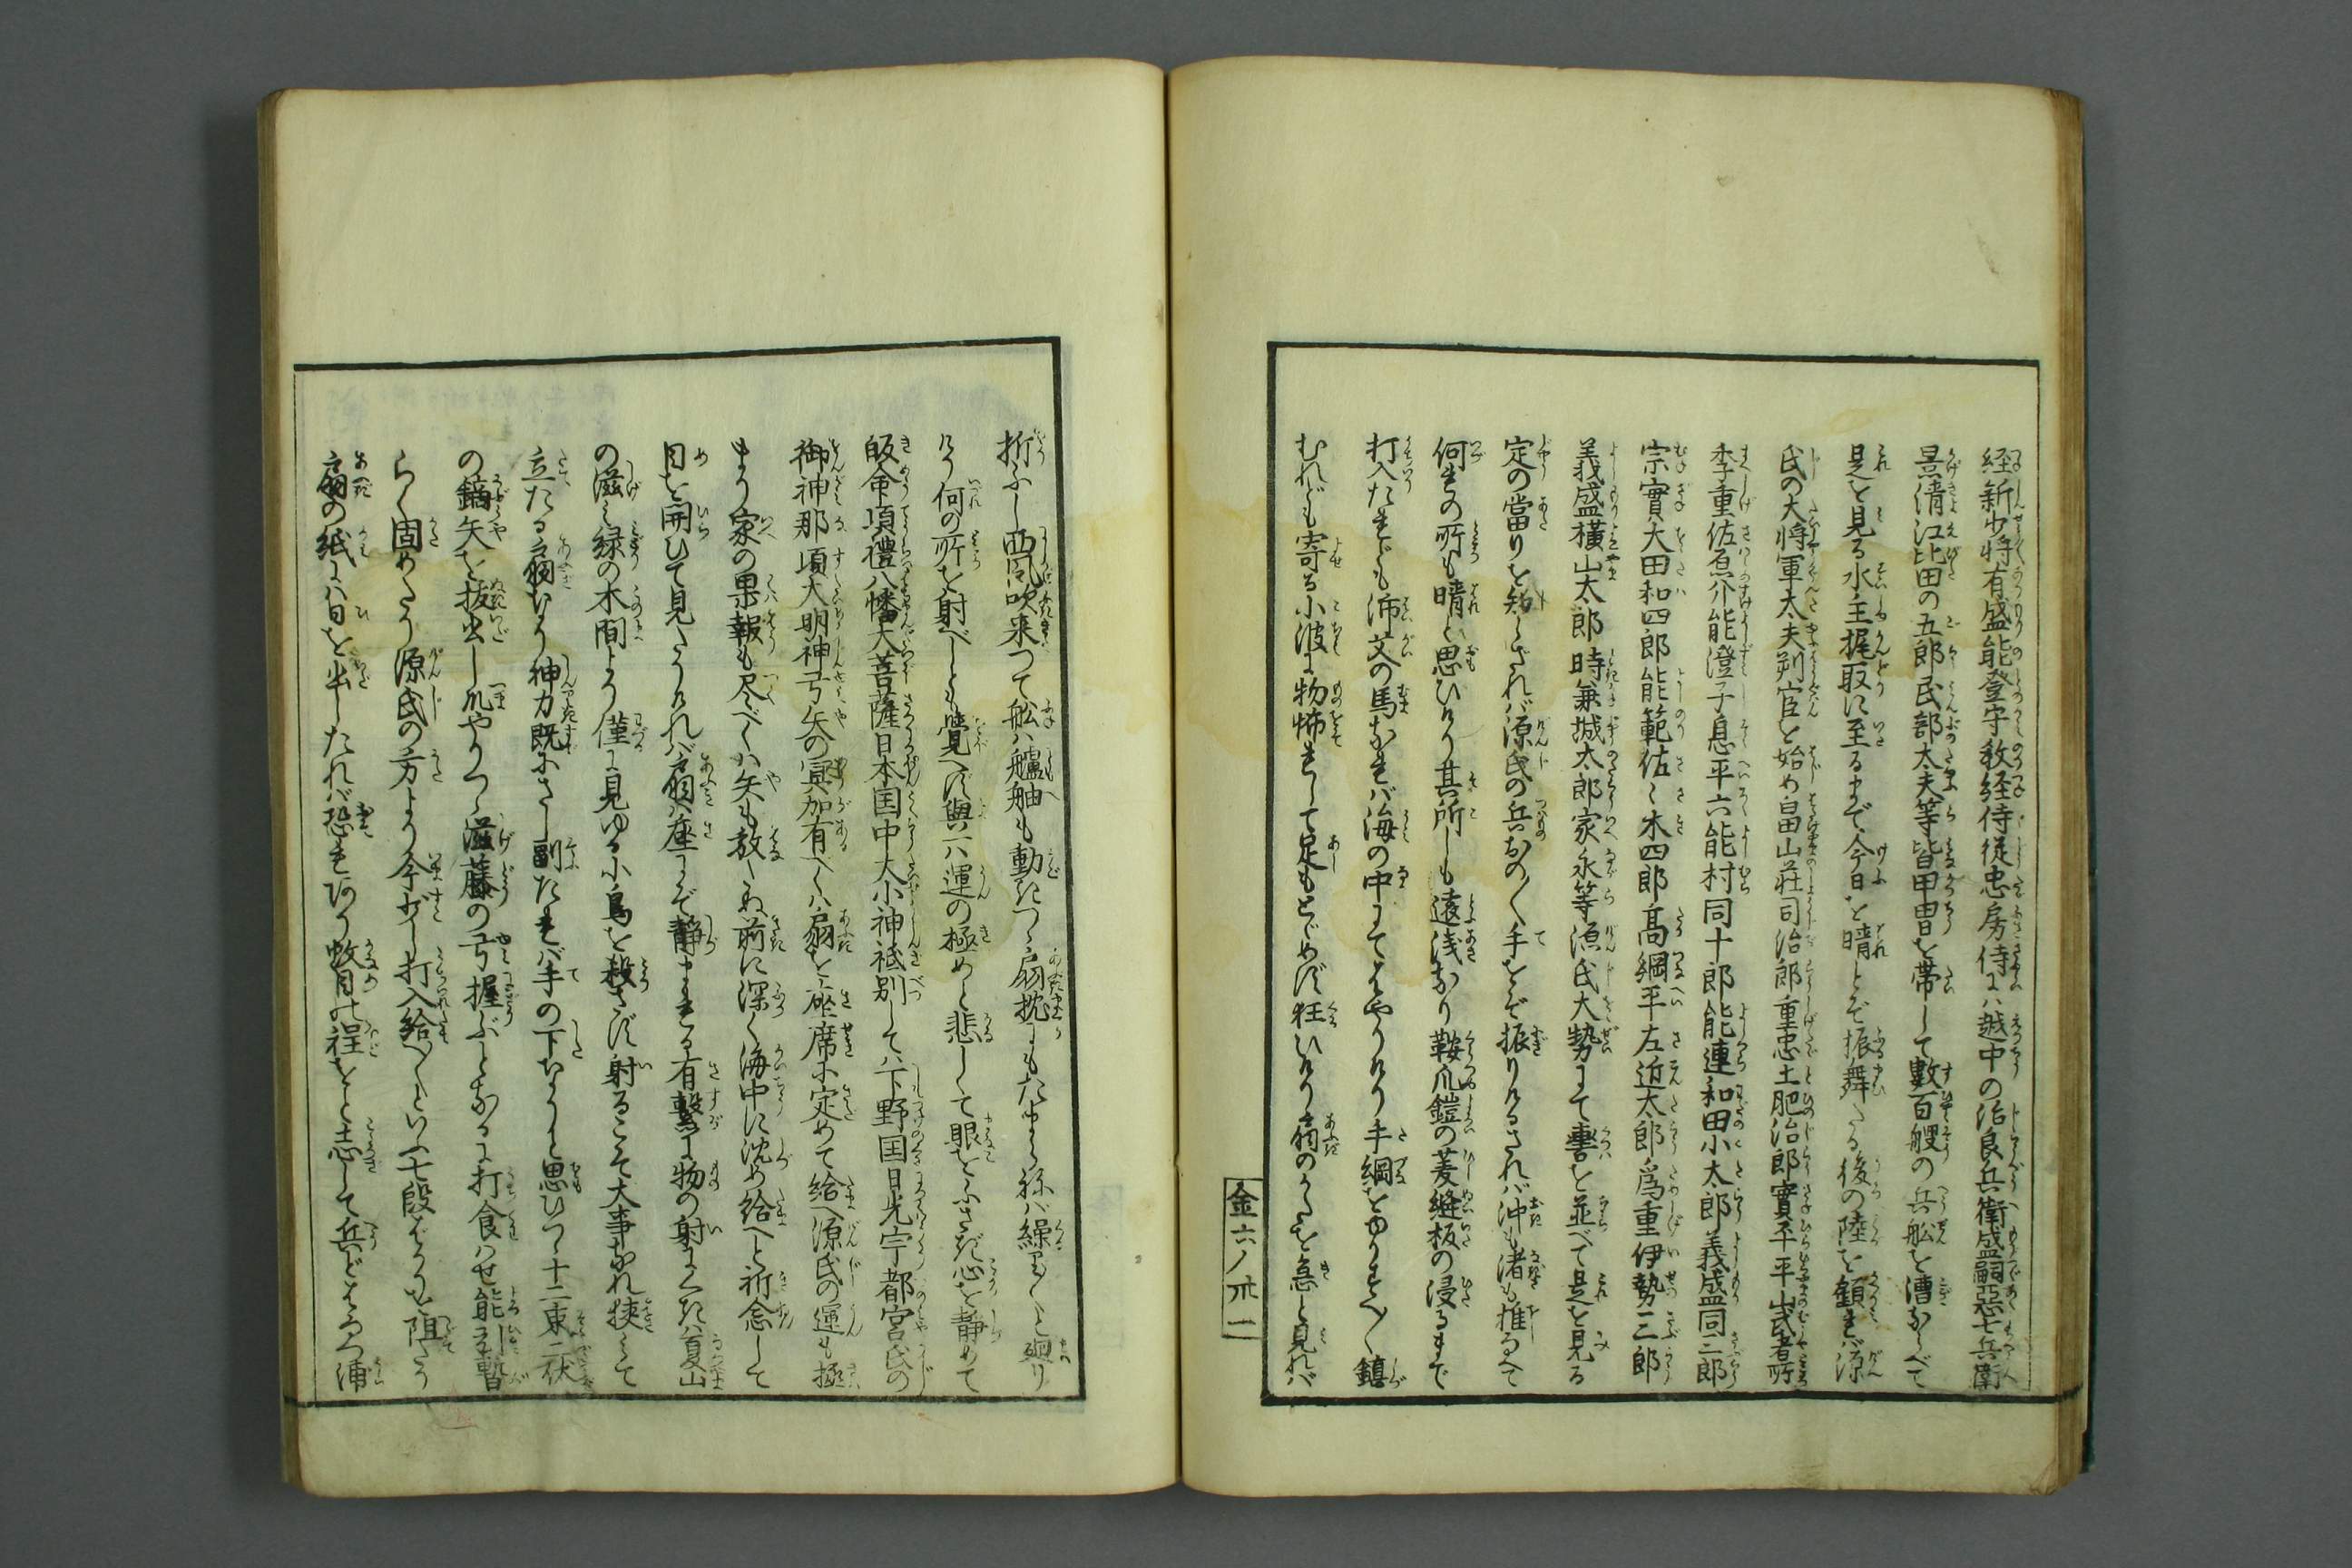 経新少将有盛能登守教経侍従忠房侍には越中の治良兵衛盛嗣悪七兵衛
景清江比田の五郎民部太夫等皆甲冑を帯して數百艘の兵舩を漕ならべて
是を見る水主揖取に至るまで今日を晴とぞ振舞たる後の陸を顧れば源
氏の大将軍太夫判官を始め畠山莊司治郎重忠土肥治郎實平平山武者所
季重佐原介能澄子息平六能村同十郎能連和田小太郎義盛同三郎
宗實大田和四郎能範佐々木四郎髙綱平左近太郎為重伊勢三郎
義盛横山太郎時兼城太郎家永等源氏大勢にて轡を並べて是を見る
定の當りを知らざれば源氏の兵おの〱手をぞ振りけるされば沖も渚も推なへて
何まの所も晴と思ひけり其所しも遠浅なり鞍爪鎧の菱縫板の浸るまで
打入たれども沛艾の馬なれば海の中にてはやりけり手綱をゆりすへ〱鎮
むれども寄る小波に物怖れして足もとゞめず狂ひけり扇のかたを急と見れば
金六ノ廿二
折ふし西風吹来つて舩は艫舳も動きつゝ扇枕にもたまらねば繰り〱と廻り
けり何の所を射べしとも覚へず與一八運の極めと悲しくて眼をふさぎ心を静めて
皈命頂禮八幡大菩薩日本国中大小神祗別しては下野国日光宇都宮氏の
御神那須大明神弓矢の冥加有べくは扇を座席に定めて給へ源氏の運も極
まり家の果報も尽べくは矢も放さぬ前に深く海中に沈め給へと祈念して
目を開ひて見たりければ扇は座にぞ静まれる有繋に物の射にくきは夏山
の滋き緑の木間より僅に見ゆる小鳥を殺さず射るこそ大事なれ挟みて
立たる扇なり神力既にさし副たれば手の下なりと思ひつゝ十二束二伏
の鏑矢を抜出し爪やりつゝ滋藤の弓握ぶとなるに打食はせ能引暫
らく固めたり源氏の方より今少し打入給へ〱といふ七段ばかりを阻たり
扇の紙には日を出したれば恐れあり蚊目の程をと志して兵どはなつ浦